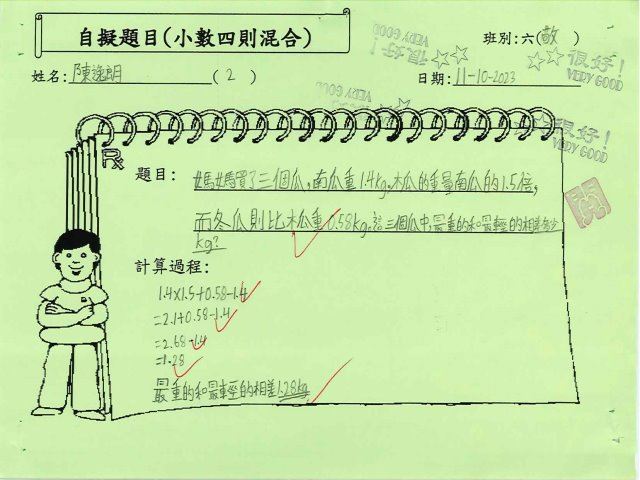 自擬題目(小數四則混合)
班別:六(敬)
姓名:陳逸朗(2)
日期:11-10-2023
很好!
VERY GOOD
很好!
VERY GOOD
很好!
VERY GOOD
VERY GOOD
閱
Rx
題目: 媽媽買了三個瓜,南瓜重1.4kg,木瓜的重量南瓜的1.5倍,
而冬瓜則比木瓜重0.58kg.這三個瓜中,最重的和最輕的相差多少
kg?
計算過程:
1.4×1.5+0.58-1.4
=2.1+0.58-1.4
=2.68-1.4
=1.28
最重的和最輕的相差1.28kg